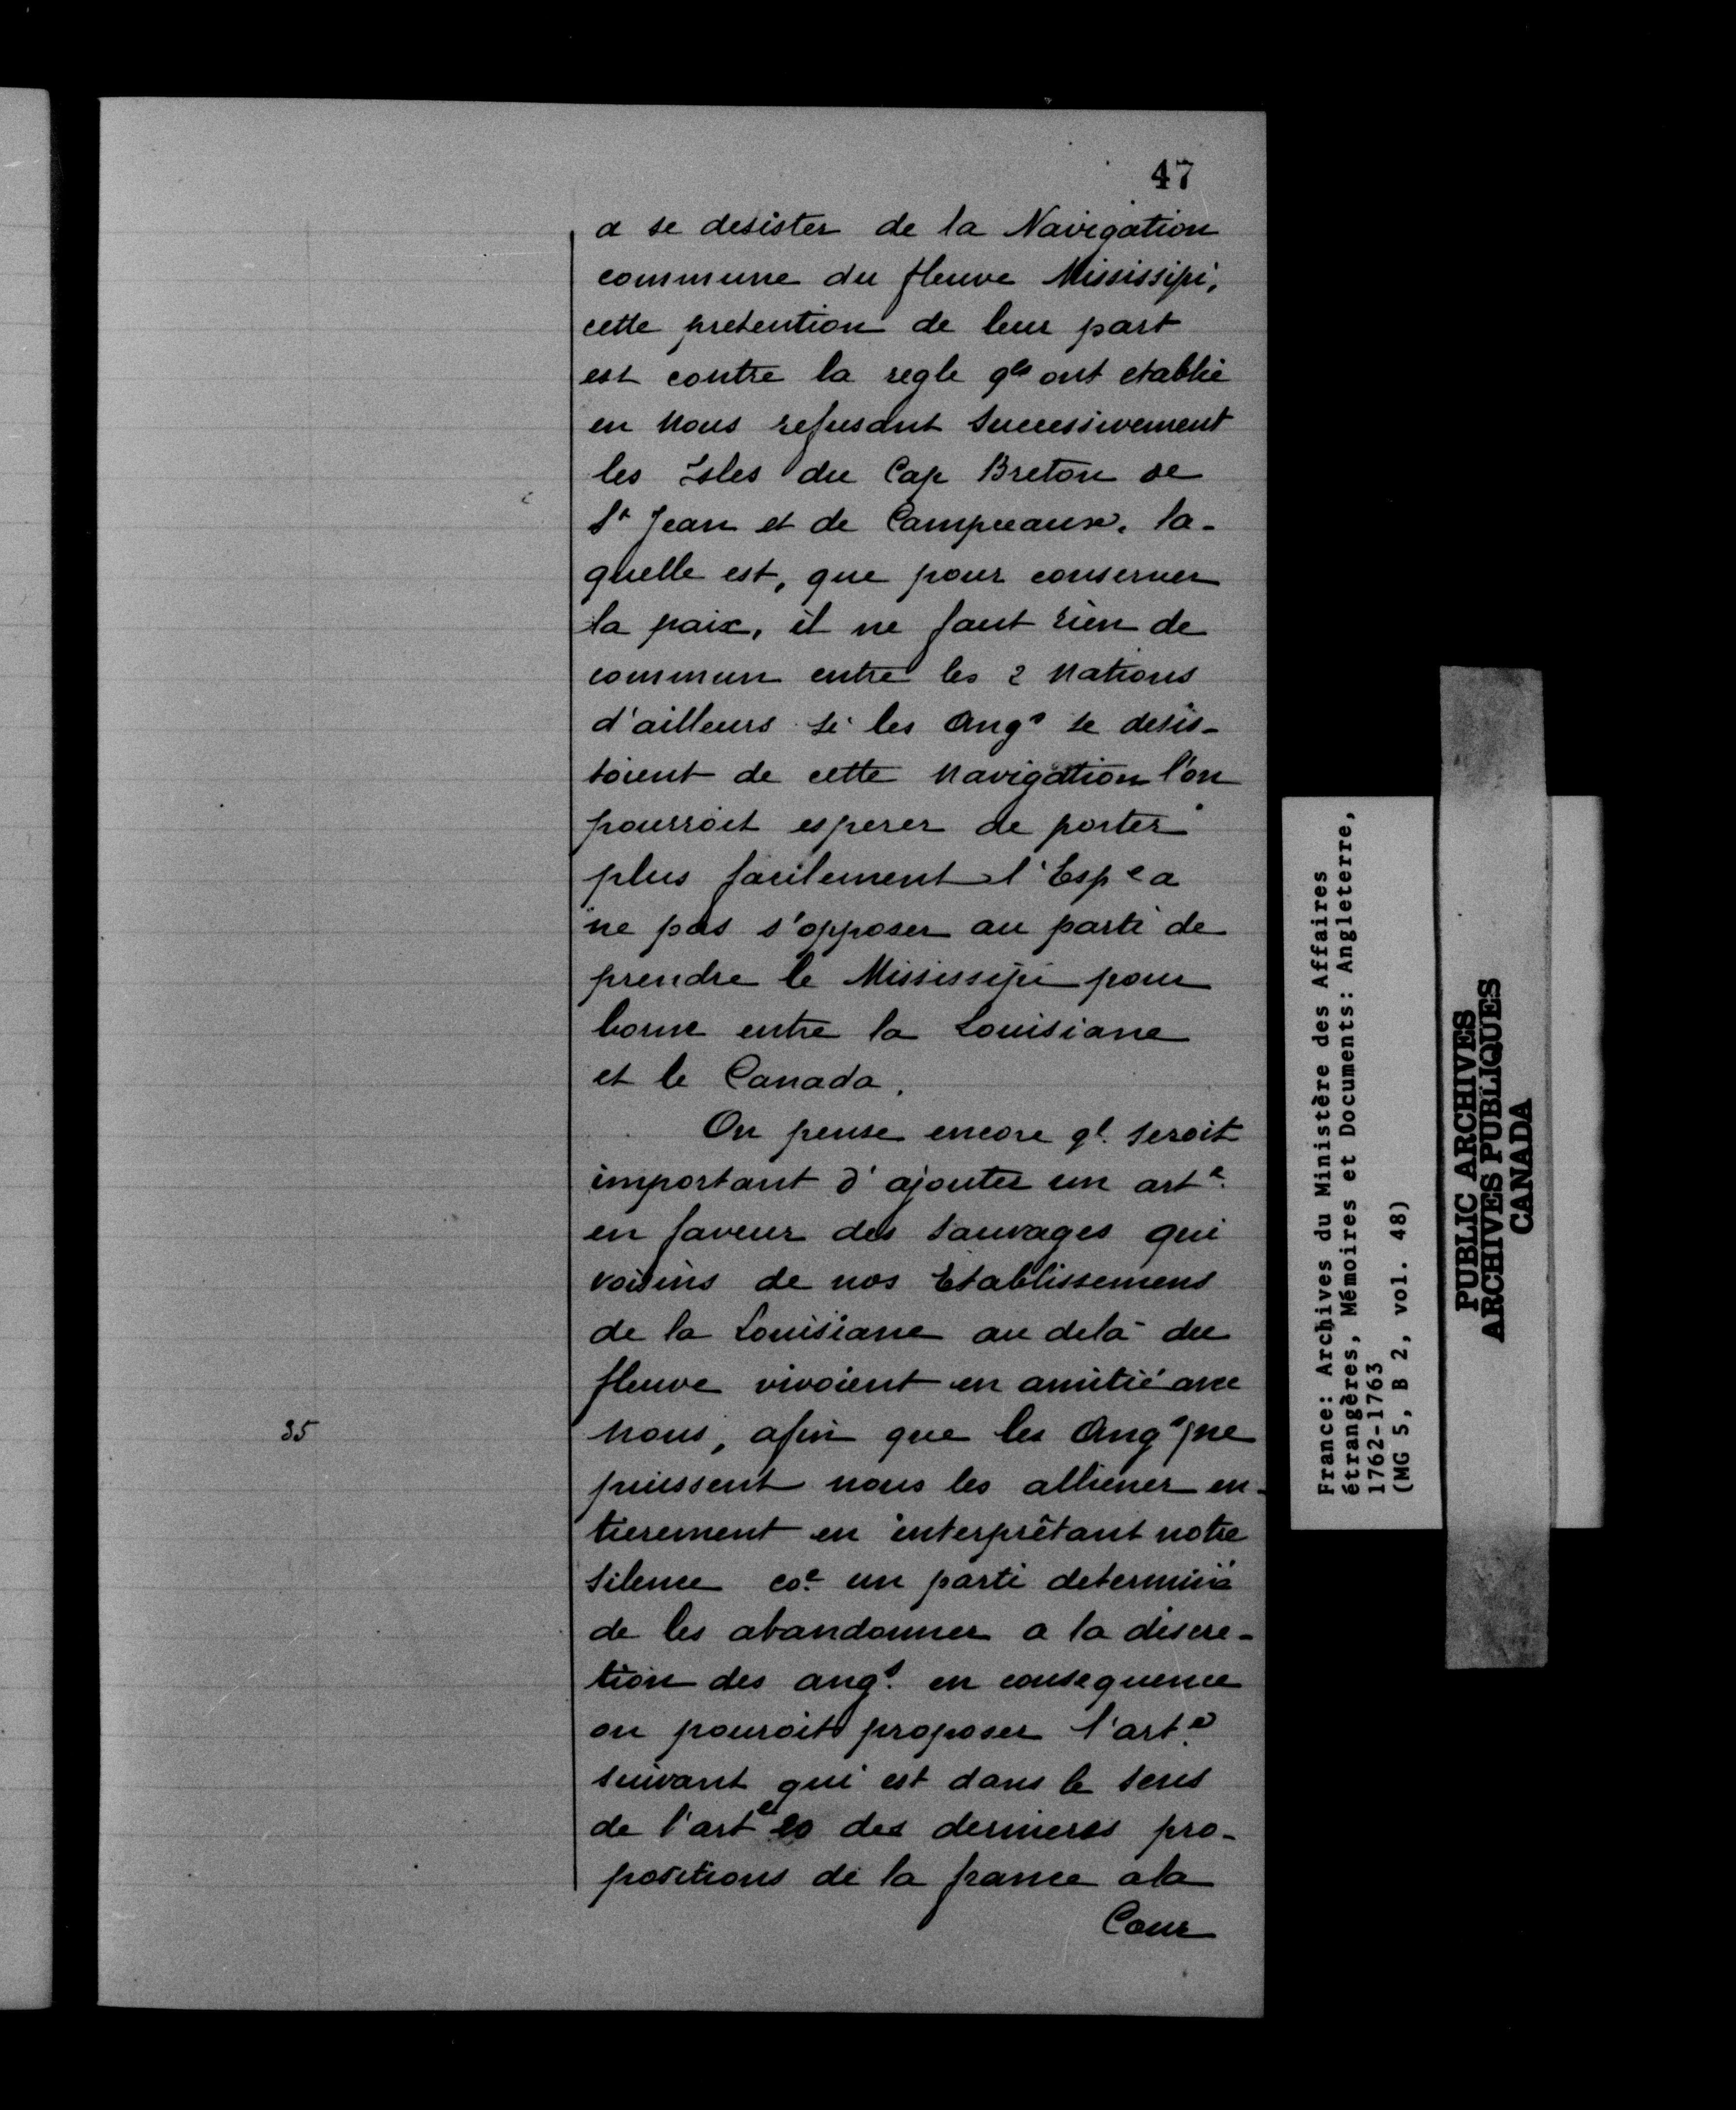 47
a se desister de la Navigation
commune du fleuve Mississipi,
cette pretention de leur part
est contre la regle qls ont etablie
en Nous refusant Successivement
les Isles du Cap Breton de
St Jean et de Campceaux, la-
quelle est, que pour conserver
la paix, il ne faut rien de
commun entre les 2 Nations
d'ailleurs si les Angs se desis-
toient de cette Navigation l'on
pourroit esperer de porter
plus facilement l'Espe a
ne pas s'opposer au parti de
prendre le Mississipi pour
borne entre la Louisiane
et le Canada.
On pense encore ql. seroit
important d'ajouter un arte.
en faveur des Sauvages qui
voisins de nos Etablissemens
de la Louisiane au dela du
fleuve vivoient en amitié avec
35
Nous, afin que les Angs ne
puissent nous les alliener en-
tierement en interprêtant notre
Silence coe un parti determiné
de les abandonner a la discre-
tion des angs. en consequence
on pouroit proposer l'arte.
suivant qui est dans le sens
de l'arte 10 des dernieres pro-
positions de la france a la
Cour
France: Archives du Ministère des Affaires
étrangères, Mémoires et Documents: Angleterre,
1762-1763
(MG 5, B 2, vol. 48)
PUBLIC ARCHIVES
ARCHIVES PUBLIQUES
CANADA